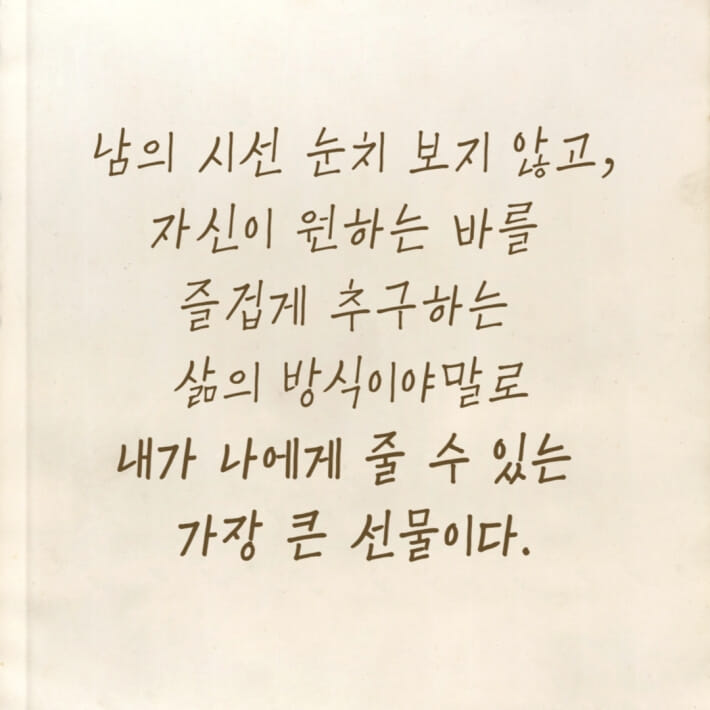 남의 시선 눈치 보지 않고,
자신이 원하는 바를
즐겁게 추구하는
삶의 방식이야말로
내가 나에게 줄 수 있는
가장 큰 선물이다.